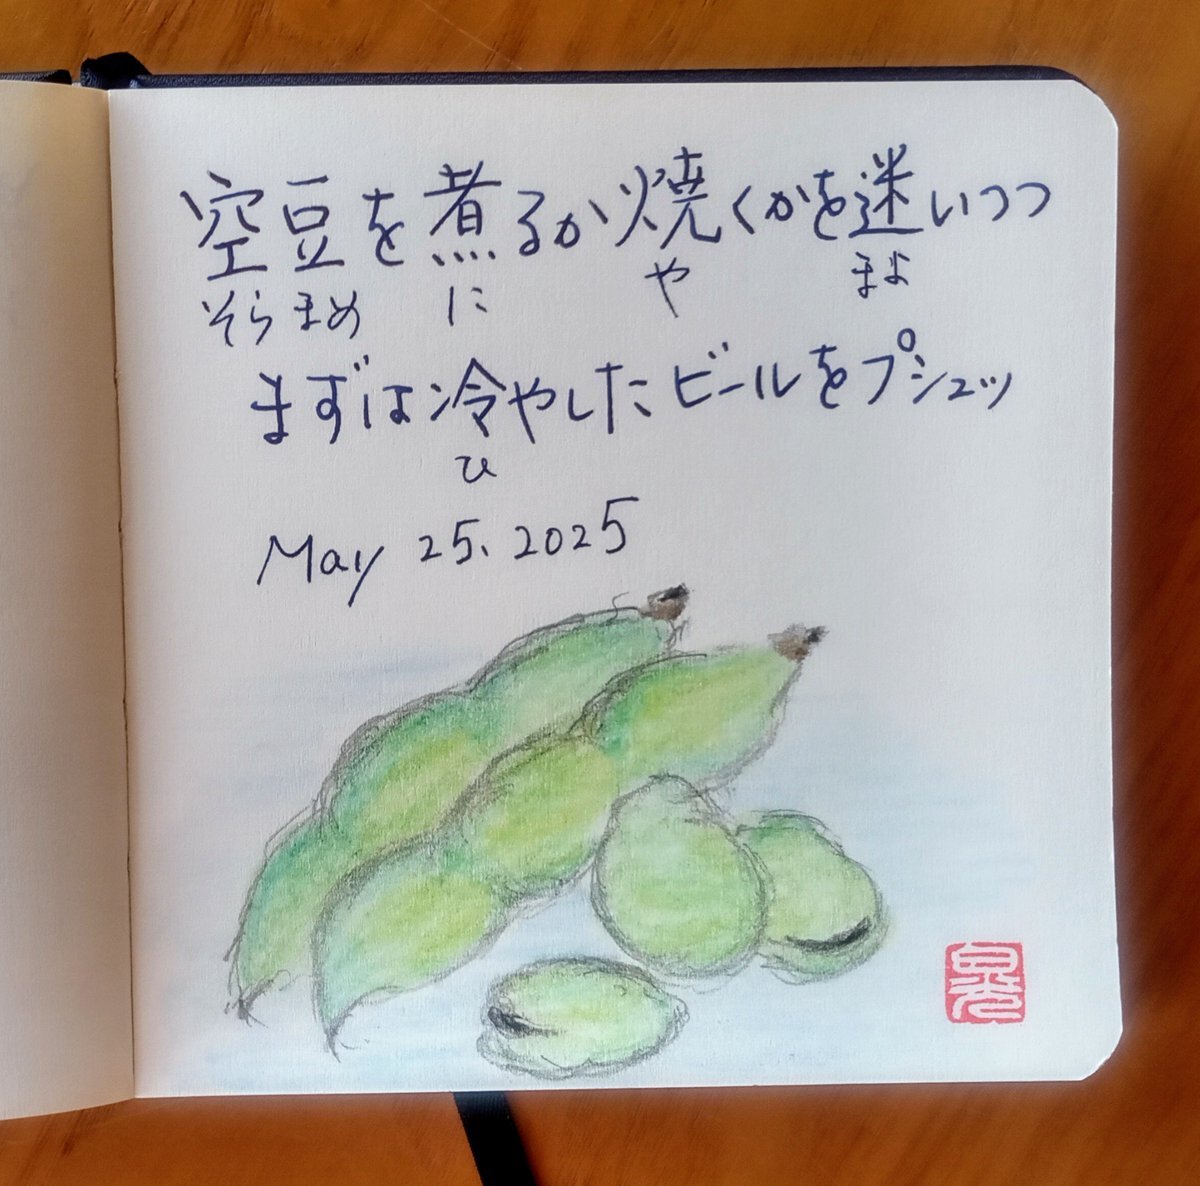 空豆を煮るか焼くかを迷いつつ
そらまめ に や まよ
まずは冷やしたビールをプシュッ
ひ
May 25. 2025